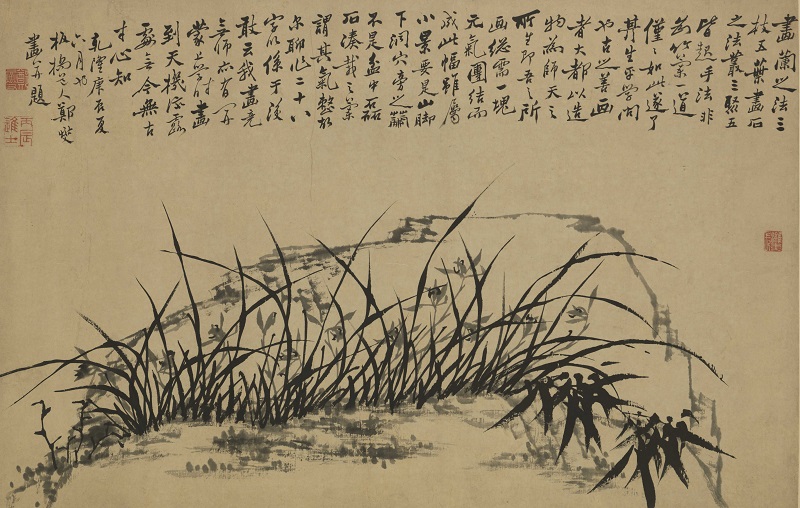 畫蘭之法三
枝五葉畫石
之法叢三聚五
皆起手法非
為竹蘭一道
僅僅如此遂了
其生平學問
也古之善畫
者大都以造
物為師天之
所生即吾之所
畫總需一塊
元氣團結而
成此幅雖屬
小景要是山脚
下洞穴旁之蘭
不是盆中磊
石湊栽之蘭
謂其氣整故
爾聊作二十八
字以係於後
敢云我畫竟
無師亦有開
蒙上學時畫
到天機流露
處無今無古
寸心知
乾隆庚辰夏
六月
板橋道人鄭燮
畫并題
丙辰進士